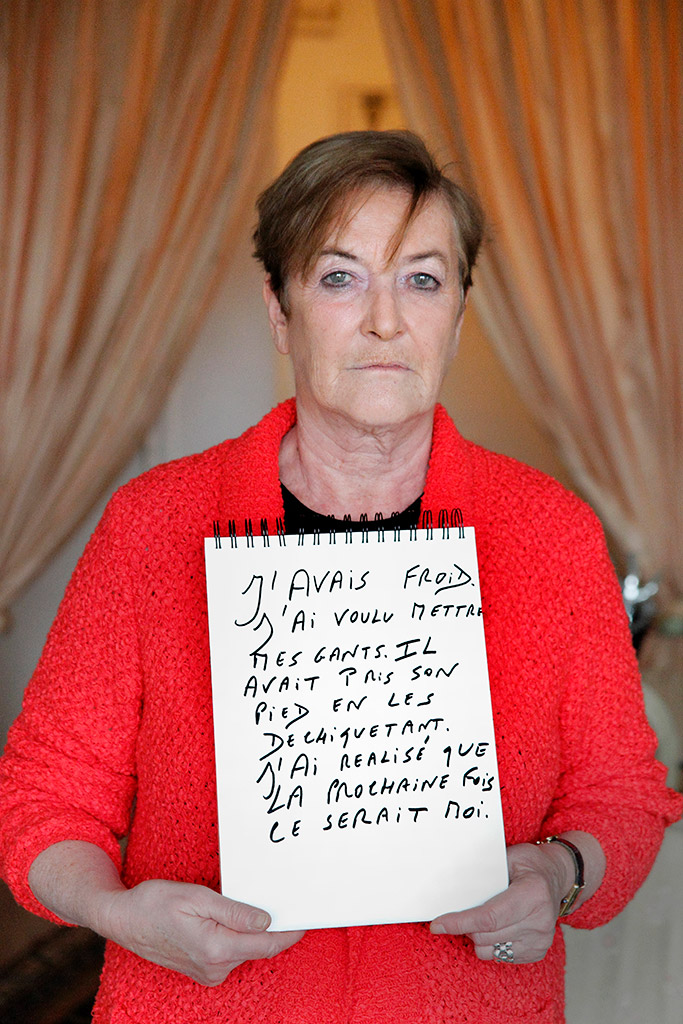 J'AVAIS FROID.
J'AI VOULU METTRE
MES GANTS. IL
AVAIT PRIS SON
PIED EN LES
DECHIQUETANT.
J'AI REALISÉ QUE
LA PROCHAINE FOIS
CE SERAIT MOI.